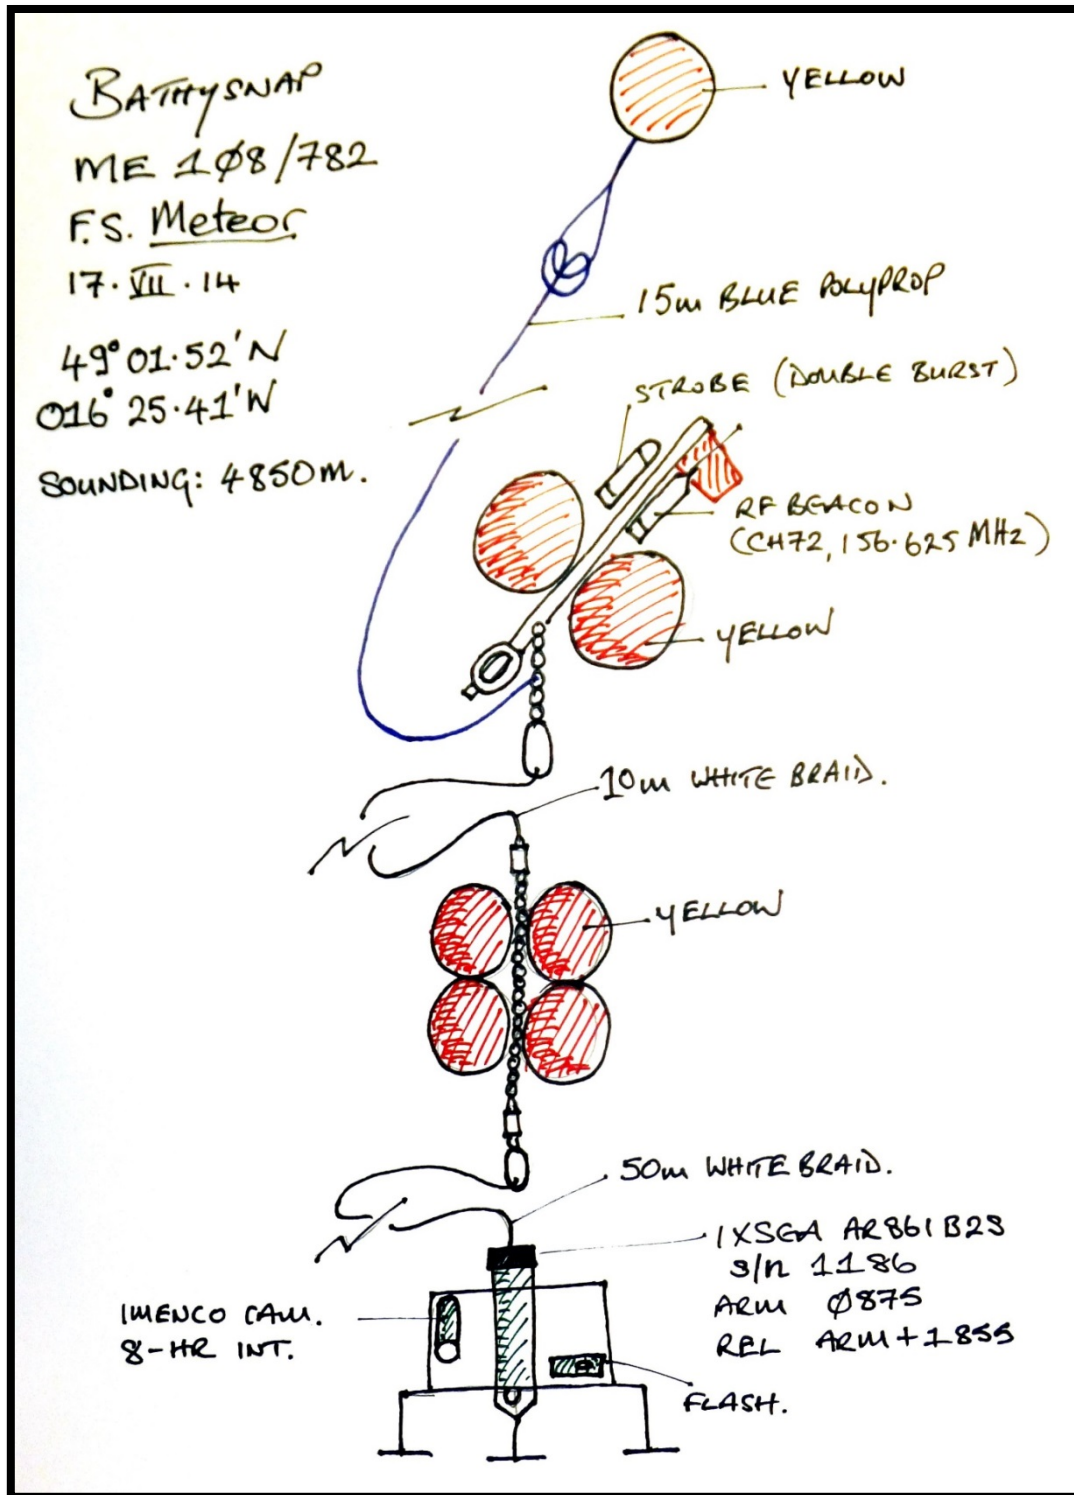 BATHYSNAP
ME 1Ø8/782
F.S. Meteor
17·VII·14
49° 01·52'N
016° 25·41'W
SOUNDING: 4850M.
YELLOW
15m BLUE POLYPROP
STROBE (DOUBLE BURST)
RF BEACON
(CH72, 156·625 MHz)
YELLOW
10m WHITE BRAID.
YELLOW
50m WHITE BRAID.
IXSEA AR861B2S
s/n 1186
ARM Ø875
REL ARM+1855
IMENCO CAM.
8-HR INT.
FLASH.